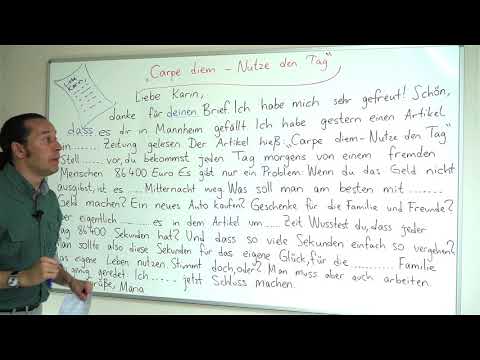 „Carpe diem – Nutze den Tag"
Liebe Karin,
Liebe Karin,
danke für deinen Brief. Ich habe mich sehr gefreut! Schön,
dass es dir in Mannheim gefällt. Ich habe gestern einen Artikel
......... Zeitung gelesen. Der Artikel hieß: „Carpe diem – Nutze den Tag"
Stell ....... vor, du bekommst jeden Tag morgens von einem fremden
Menschen 86 400 Euro. Es gibt nur ein Problem: Wenn du das Geld nicht
ausgibst, ist es ..... Mitternacht weg. Was soll man am besten mit .........
Geld machen? Ein neues Auto kaufen? Geschenke für die Familie und Freunde?
er eigentlich ......... es in dem Artikel um ...... Zeit. Wusstest du, dass jeder
ag 86 400 Sekunden hat? Und dass so viele Sekunden einfach so vergehen?
an sollte also diese Sekunden für das eigene Glück, für die ............ Familie
as eigene Leben nutzen. Stimmt doch, oder? Man muss aber auch arbeiten.
genug geredet. Ich ....... jetzt Schluss machen.
grüße, Maria